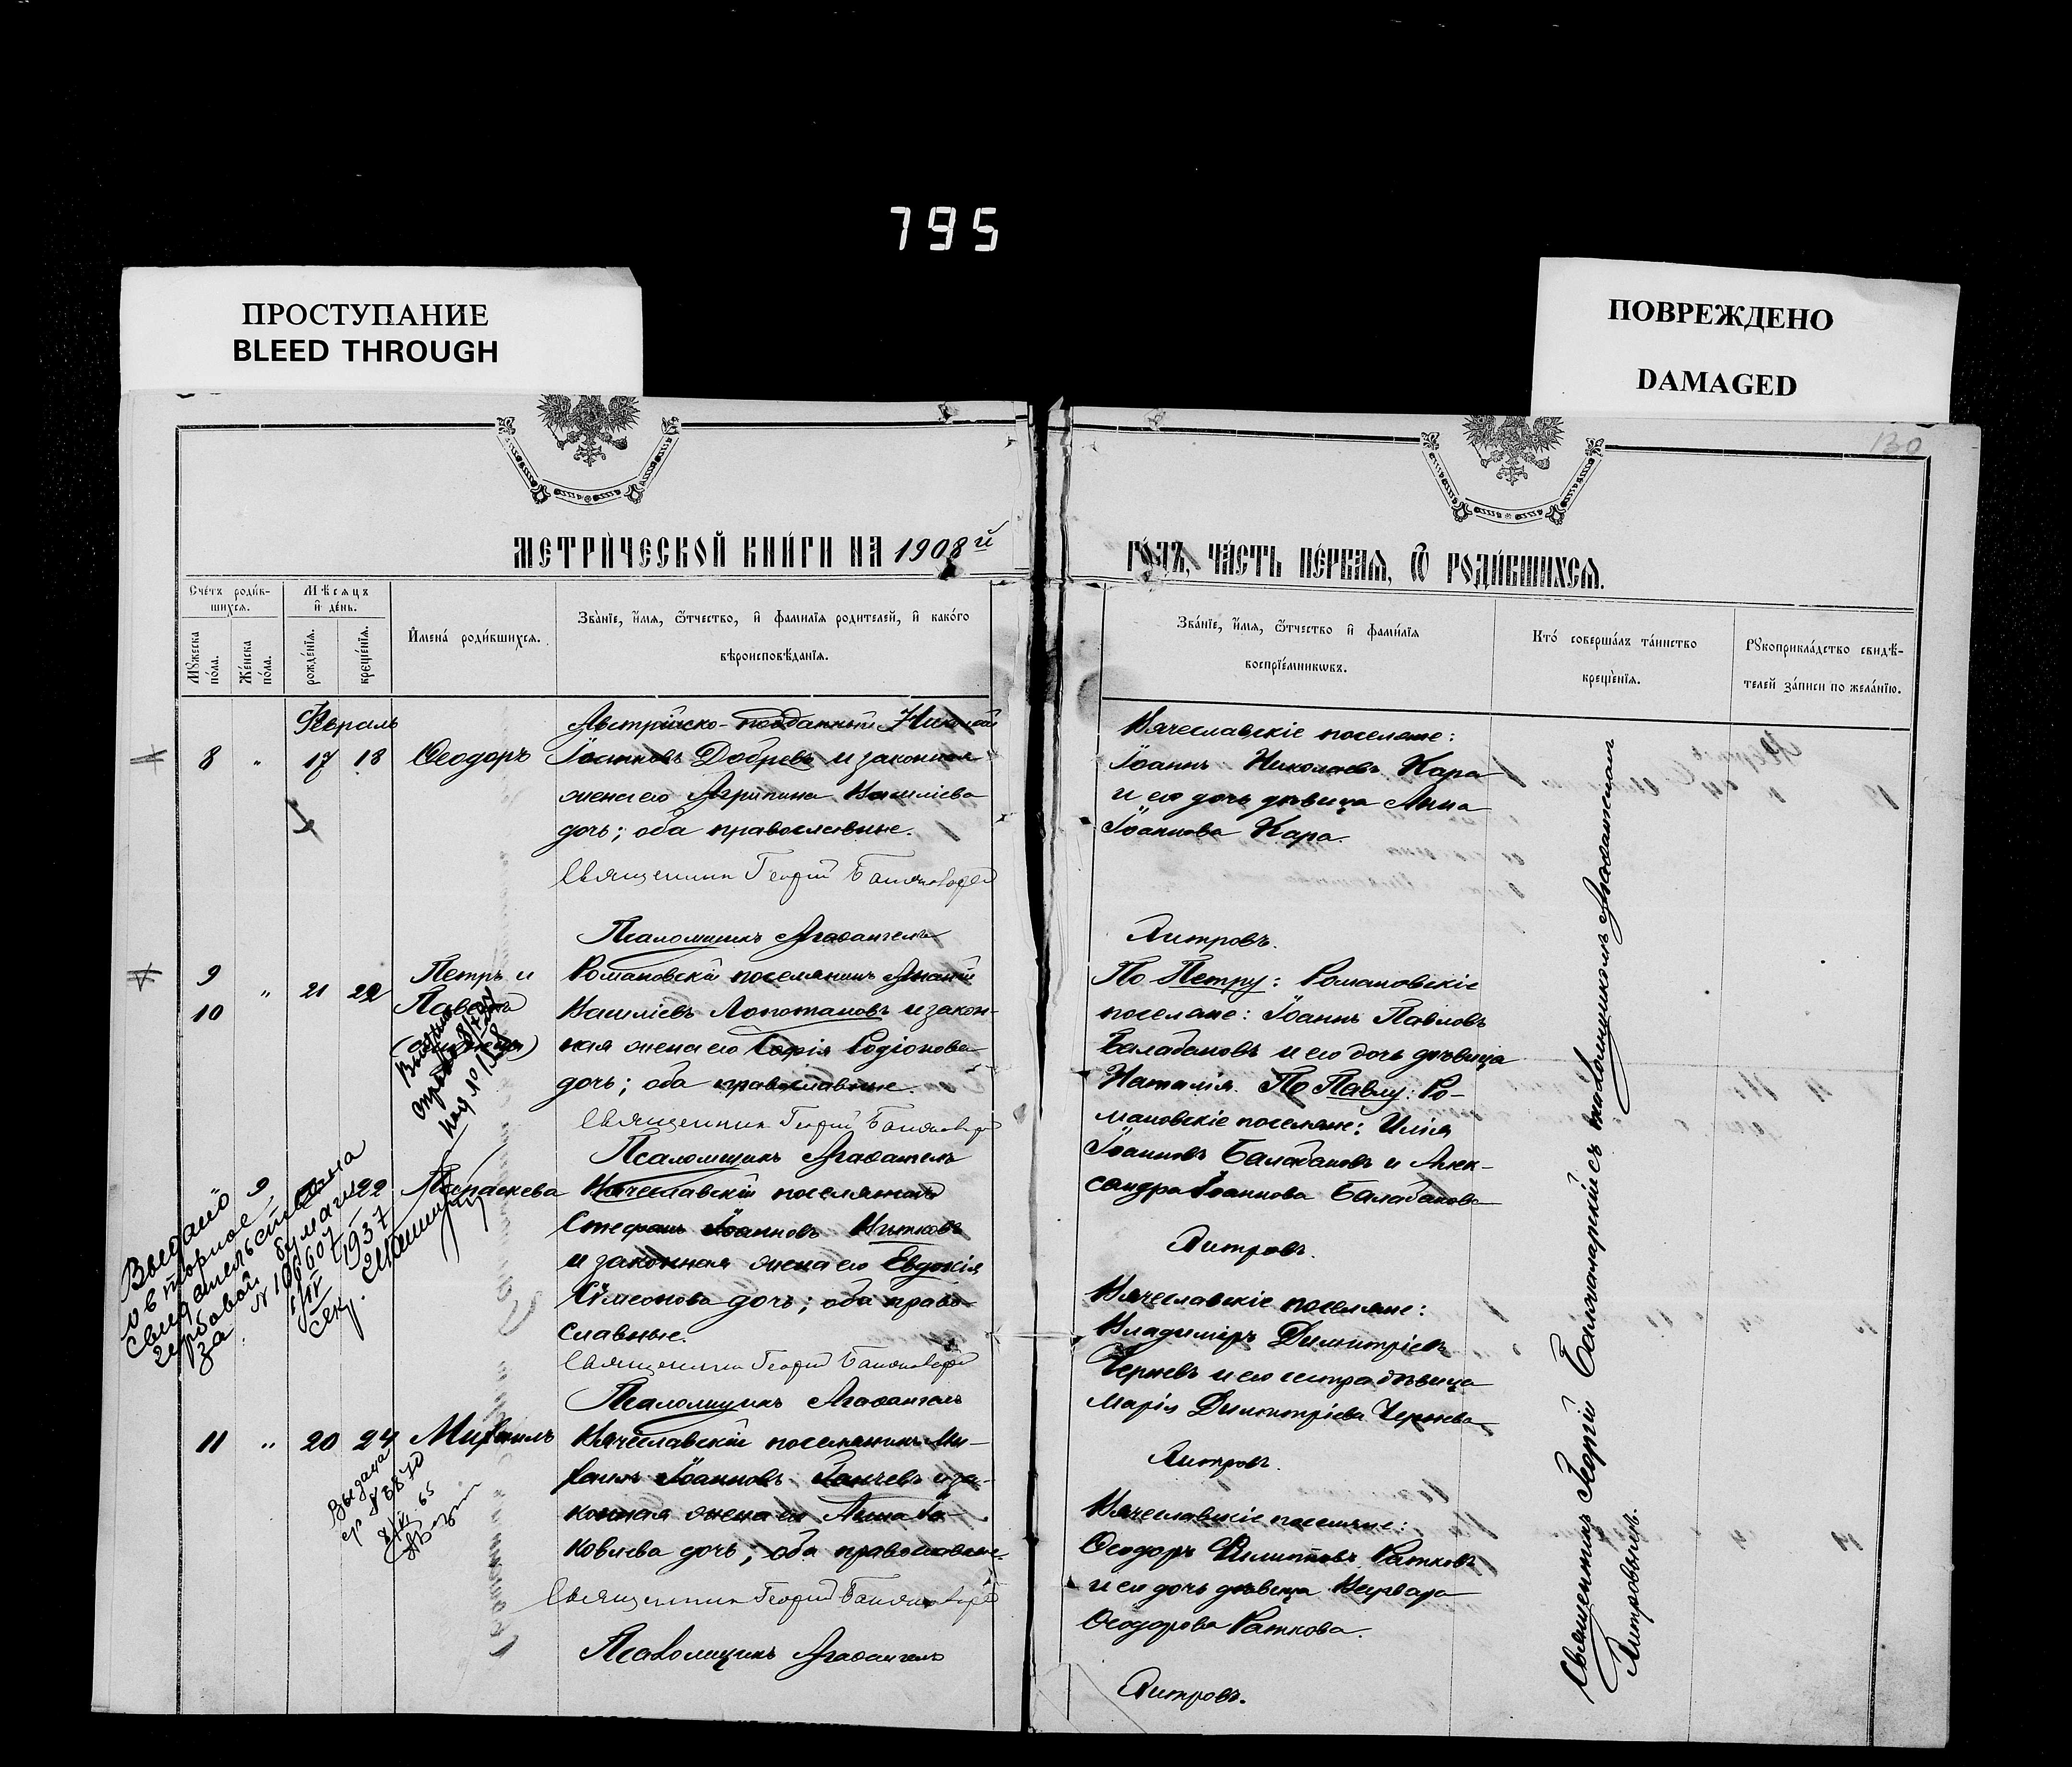 795
ПРОСТУПАНИЕ
BLEED THROUGH
ПОВРЕЖДЕНО
DAMAGED
130
МЕТРИЧЕСКОЙ КНИГИ НА 1908й
ГОДЪ, ЧАСТЬ ПЕРВАЯ, Ѿ РОДИВШИХСЯ.
Счетъ родив-
шихся.
Мѣсяцъ
и день.
Мужеска
пола.
Женска
пола.
рожденія.
крещенія.
Имена родившихся.
Званіе, имя, ѿчество, и фамилія родителей, и какого
вѣроисповѣданія.
Званіе, имя, ѿчество и фамилія
воспріемниковъ.
Кто совершалъ таинство
крещенія.
Рукоприкладство свидѣ-
телей записи по желанію.
Февраль
8 " 17 18 Ѳеодоръ
Австрійско-подданный Николай
Іоанновъ Добревъ и законная
жена его Агрипина Василіева
дочь; оба православные.
Священникъ Георгій
Псаломщикъ Агаѳангелъ
Вячеславскіе поселяне:
Іоаннъ Николаевъ Кара
и его дочь дѣвица Анна
Іоаннова Кара.
Литровъ.
9
10 " 21 22 Петръ и
Павелъ
(близнецы)
Романовскій поселянинъ Ананій
Василіевъ Лопотановъ и закон-
ная жена его Софія Родіонова
дочь; оба православные.
Священникъ Георгій
Псаломщикъ Агаѳангелъ
По Петру: Романовскіе
поселяне: Іоаннъ Павловъ
Балабановъ и его дочь дѣвица
Наталія. По Павлу: Ро-
мановскіе поселяне: Илія
Іоанновъ Балабановъ и Алек-
сандра Іоаннова Балабанова
Литровъ.
9 22 Параскева
Вячеславскій поселянинъ
Стефанъ Іоанновъ
и законная жена его Евдокія
Сімеонова дочь; оба право-
славные.
Священникъ Георгій
Псаломщикъ Агаѳангелъ
Вячеславскіе поселяне:
Владиміръ Димитріевъ
Черневъ и его сестра дѣвица
Марія Димитріева Чернева
Литровъ.
Выдано
повторное
свидетельство на
гербовой бумаге
за № 106607
1/IV 1937
Секр.
11 " 20 24 Михаилъ
Вячеславскій поселянинъ Ми-
хаилъ Іоанновъ Ганчевъ и за-
конная жена его Анна Іа-
ковлева дочь; оба православные.
Священникъ Георгій
Псаломщикъ Агаѳангелъ
Вячеславскіе поселяне:
Ѳеодоръ Филипповъ Ратковъ
и его дочь дѣвица Варвара
Ѳеодорова Раткова.
Литровъ.
Священникъ Георгій съ псаломщикомъ Агаѳангеломъ
Литровымъ.